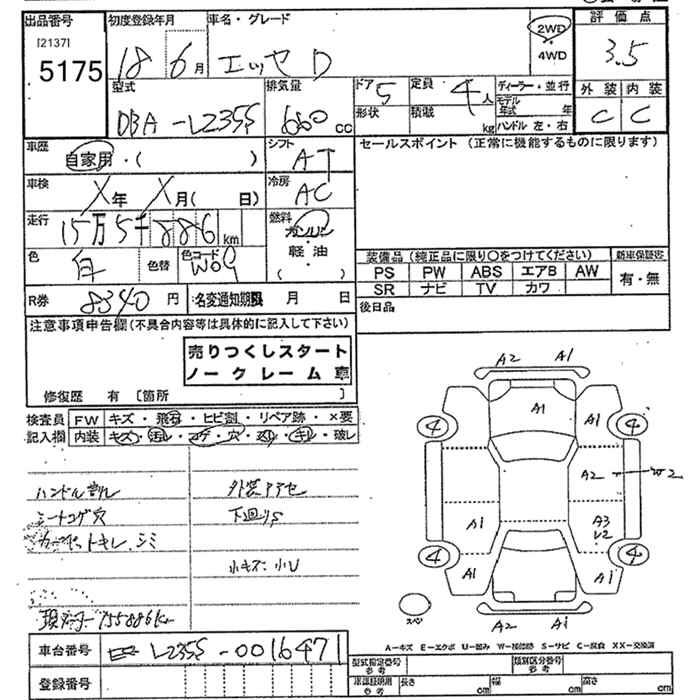 出品番号 初度登録年月 車名・グレード 2WD 評価点
[2137] 4WD
5175 18 6月 エッセ D 3.5
型式 排気量 ドア 5 定員 4人 ディーラー・並行 外装 内装
DBA-L235S 660cc 形状 積載 kg モデル年式 年 C C
ハンドル 左・右
車歴 自家用・( ) シフト AT セールスポイント (正常に機能するものに限ります)
車検 X年 X月( 日) 冷房 AC
走行 15万5千886km 燃料 ガソリン
軽油
( )
色 白 色替 色コード W09 装備品 (純正品に限り○をつけてください) 新車保証書
PS PW ABS エアB AW 有・無
SR ナビ TV カワ
R券 8340円 名変通知期限 月 日 後日品
注意事項申告欄(不具合内容等は具体的に記入して下さい)
売りつくしスタート
ノークレーム車
修復歴 有 [箇所 ]
検査員 FW キズ・飛石・ヒビ割・リペア跡・×要
記入欄 内装 キズ・汚レ・コゲ・穴・スレ・キレ・破レ
A2 A1
A1 A1
4 4
A2 W2
ハンドル割れ 外装アテセ
シートコゲ穴 下回りS
A1 A3
V2
小キズ・小U
4 4
A1 A1
155886km
スペア A2 A1
車台番号 L235S-0016471
A-キズ E-エクボ U-凹み W-補修跡 S-サビ C-腐食 XX-交換済
登録番号
型式指定番号 参考 類別区分番号 参考
車庫証明用 参考 長さ cm 幅 cm 高さ cm